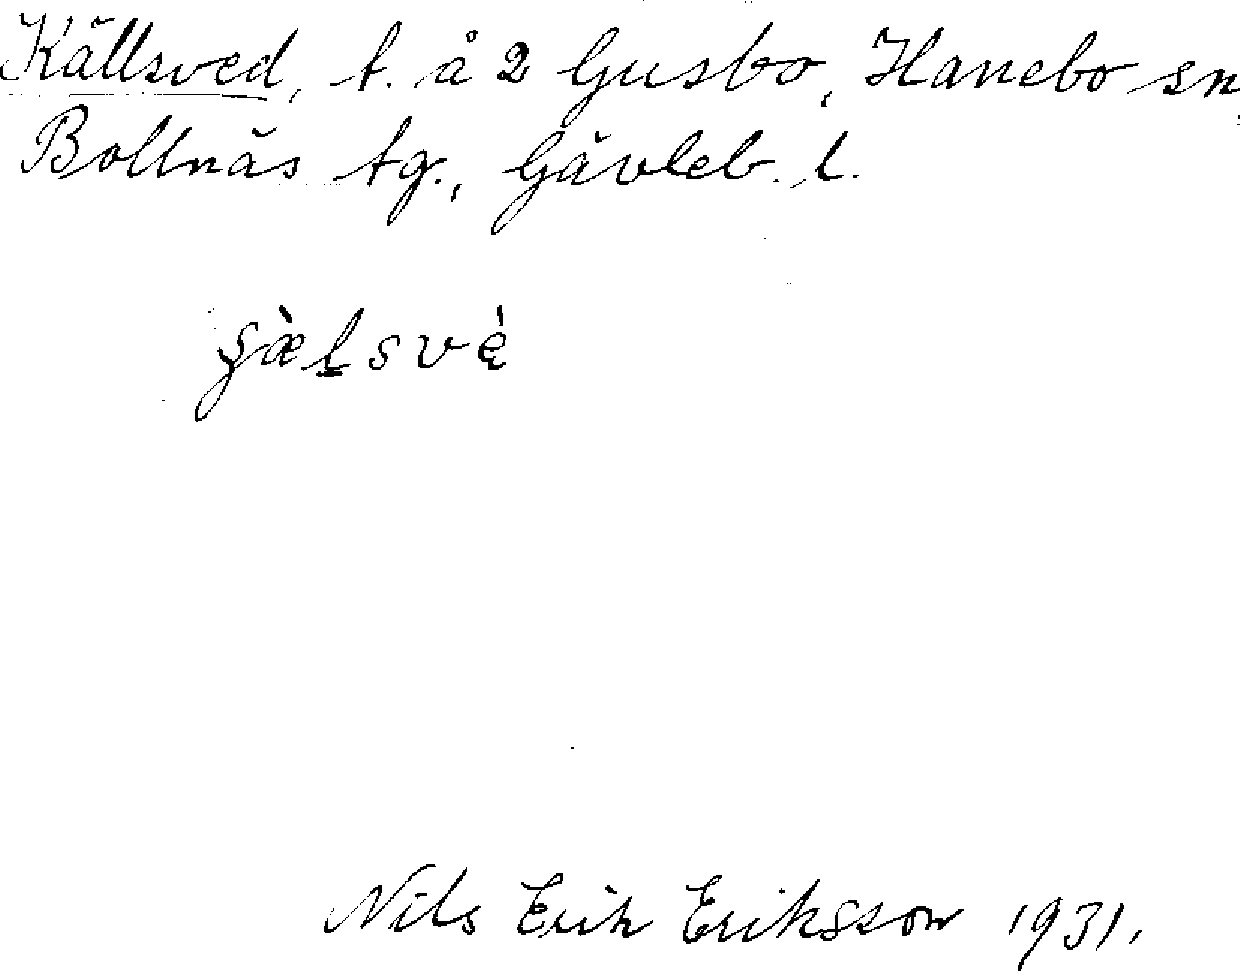 Källsved, t. å 2 Gusbo, Hanebo sn,
Bollnäs tg., Gävleb. l.
Nils Erik Eriksson 1931.